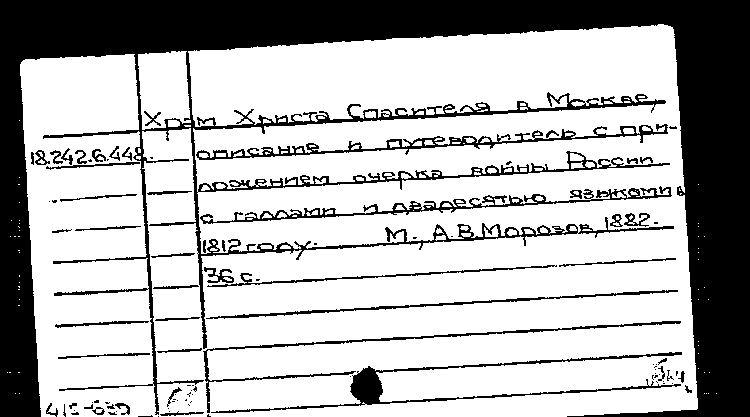 Храм Христа Спасителя в Москве,
18.242.6.448. описание и путеводитель с при-
ложением очерка войны России
с галлами и двадесятью языками в
1812 году. М., А.В.Морозов, 1882.
36 с.
415-630